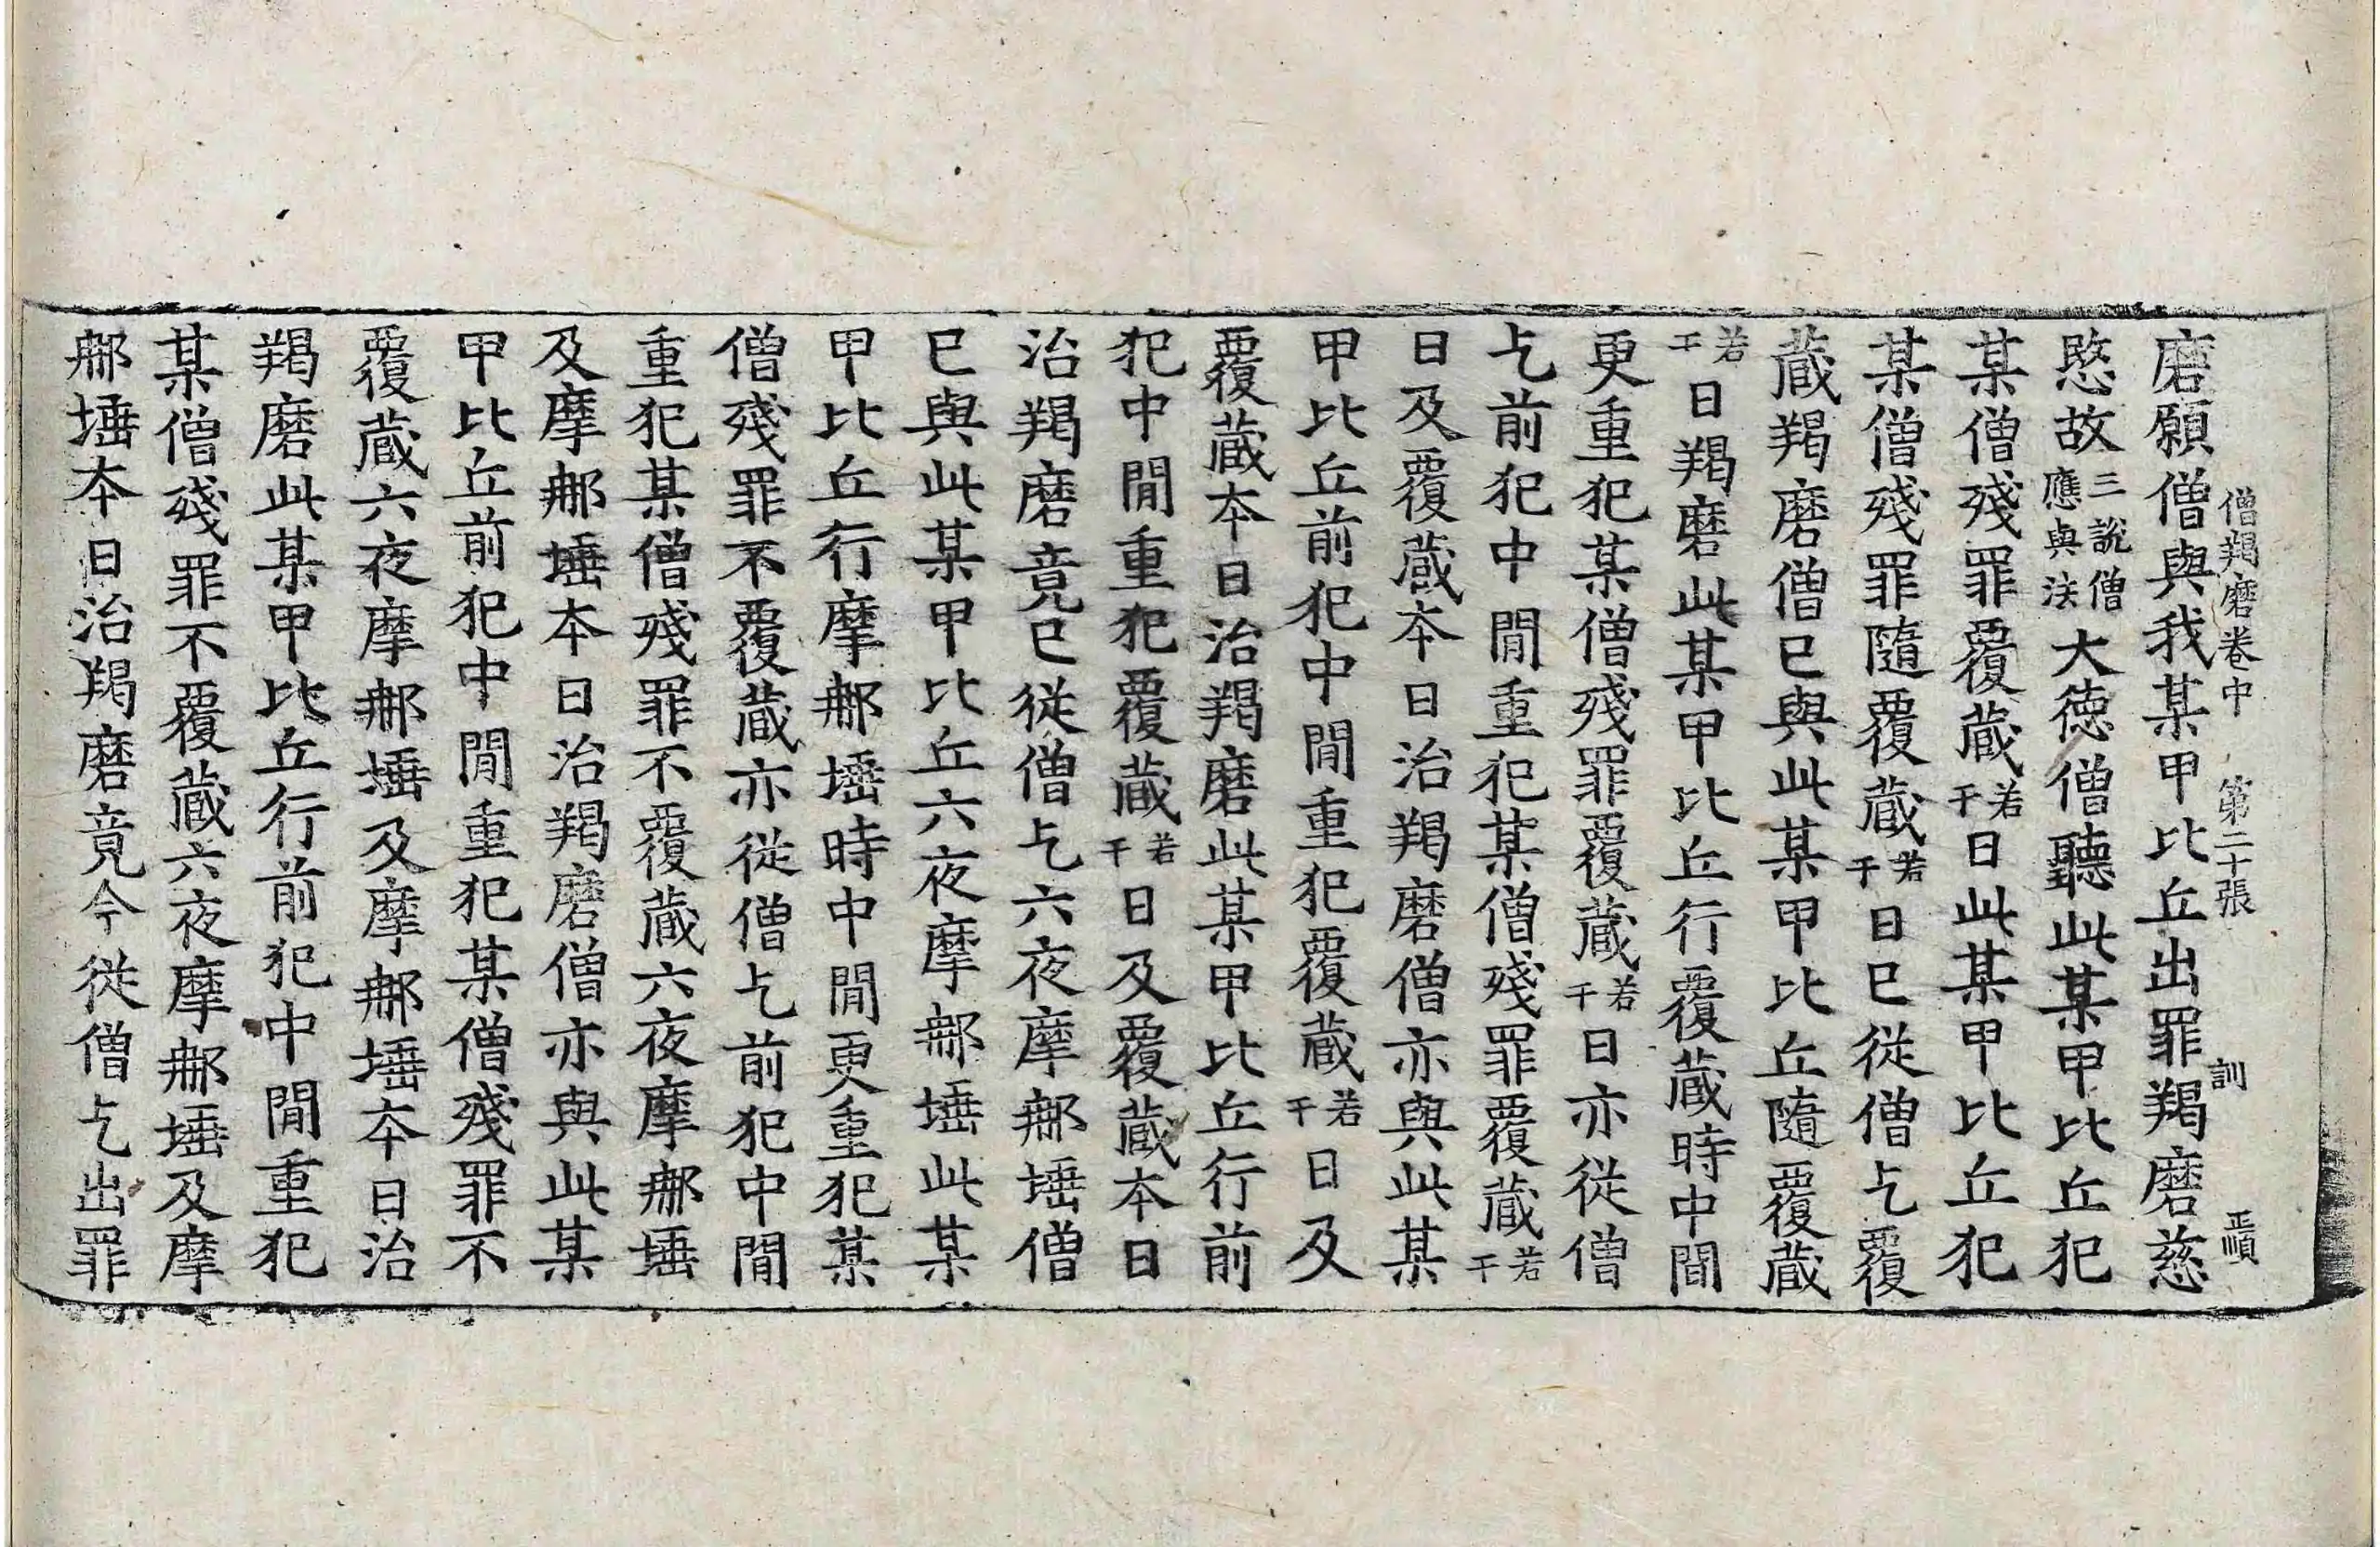 僧羯磨卷中 第二十張 訓 正順
磨願僧與我某甲比丘出罪羯磨慈
愍故三說僧應與法大德僧聽此某甲比丘犯
某僧殘罪覆藏若干日此某甲比丘犯
某僧殘罪隨覆藏若干日已從僧乞覆
藏羯磨僧已與此某甲比丘隨覆藏
若干日羯磨此某甲比丘行覆藏時中間
更重犯某僧殘罪覆藏若干日亦從僧
乞前犯中間重犯某僧殘罪覆藏若干
日及覆藏本日治羯磨僧亦與此某
甲比丘前犯中間重犯覆藏若干日及
覆藏本日治羯磨此某甲比丘行前
犯中間重犯覆藏若干日及覆藏本日
治羯磨竟已從僧乞六夜摩那埵僧
已與此某甲比丘六夜摩那埵此某
甲比丘行摩那埵時中間更重犯某
僧殘罪不覆藏亦從僧乞前犯中間
重犯某僧殘罪不覆藏六夜摩那埵
及摩那埵本日治羯磨僧亦與此某
甲比丘前犯中間重犯某僧殘罪不
覆藏六夜摩那埵及摩那埵本日治
羯磨此某甲比丘行前犯中間重犯
某僧殘罪不覆藏六夜摩那埵及摩
那埵本日治羯磨竟今從僧乞出罪